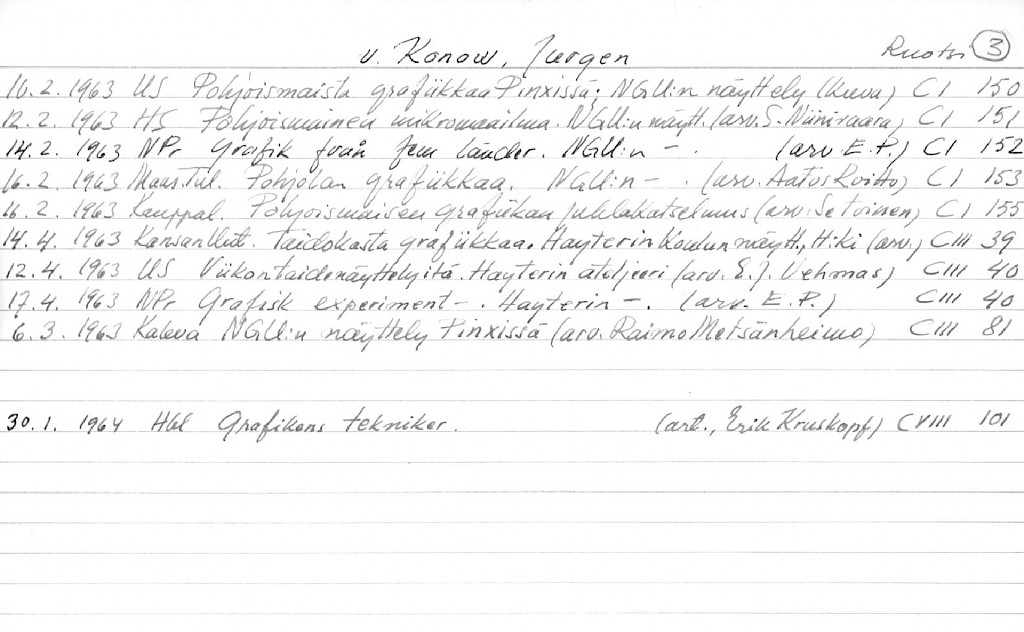 v. Konow, Jurgen Ruotsi 3
10.2. 1963 US Pohjoismaista grafiikkaa Pinxissä; NGU:n näyttely (kuva) CI 150
12.2. 1963 HS Pohjoismainen mikromaailma. NGU:n näytt. (arv. S. Niiniraara) CI 151
14.2. 1963 NPr Grafik från fem länder. NGU:n – . (arv E.P.) CI 152
16.2. 1963 Maas.Tul. Pohjolan grafiikkaa. NGU:n – . (arv. Aatos Roitto) CI 153
16.2. 1963 Kauppal. Pohjoismaisen grafiikan juhlakatselmus (arv. Se toinen) CI 155
14.4. 1963 Kansan Uut. Taidokasta grafiikkaa. Hayterin Koulun näytt., H:ki (arv.) CIII 39
12.4. 1963 US Viikon taidenäyttelyitä. Hayterin ateljeeri (arv. E.J. Vehmas) CIII 40
17.4. 1963 NPr Grafisk experiment – . Hayterin – . (arv. E.P.) CIII 40
6.3. 1963 Kaleva NGU:n näyttely Pinxissä (arv. Raimo Metsänheimo) CIII 81
30.1. 1964 Hbl Grafikens tekniker. (art., Erik Kruskopf) CVIII 101